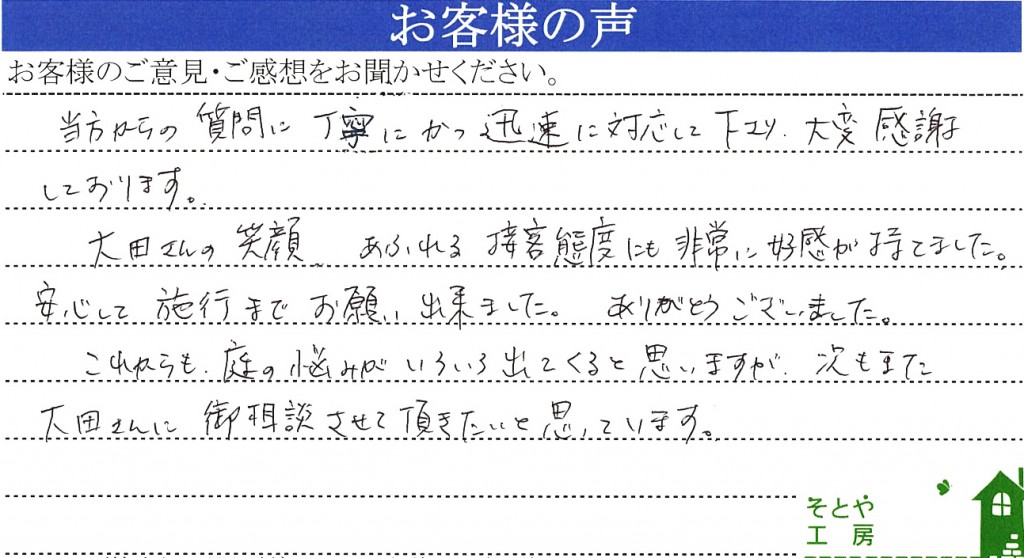 お客様の声
お客様のご意見・ご感想をお聞かせください。
当方からの質問に丁寧にかつ迅速に対応して下さり、大変感謝
しております。
太田さんの笑顔あふれる接客態度にも非常に好感が持てました。
安心して施行までお願い出来ました。ありがとうございました。
これからも、庭の悩みがいろいろ出てくると思いますが、次もまた
太田さんに御相談させて頂きたいと思っています。
そとや
工房